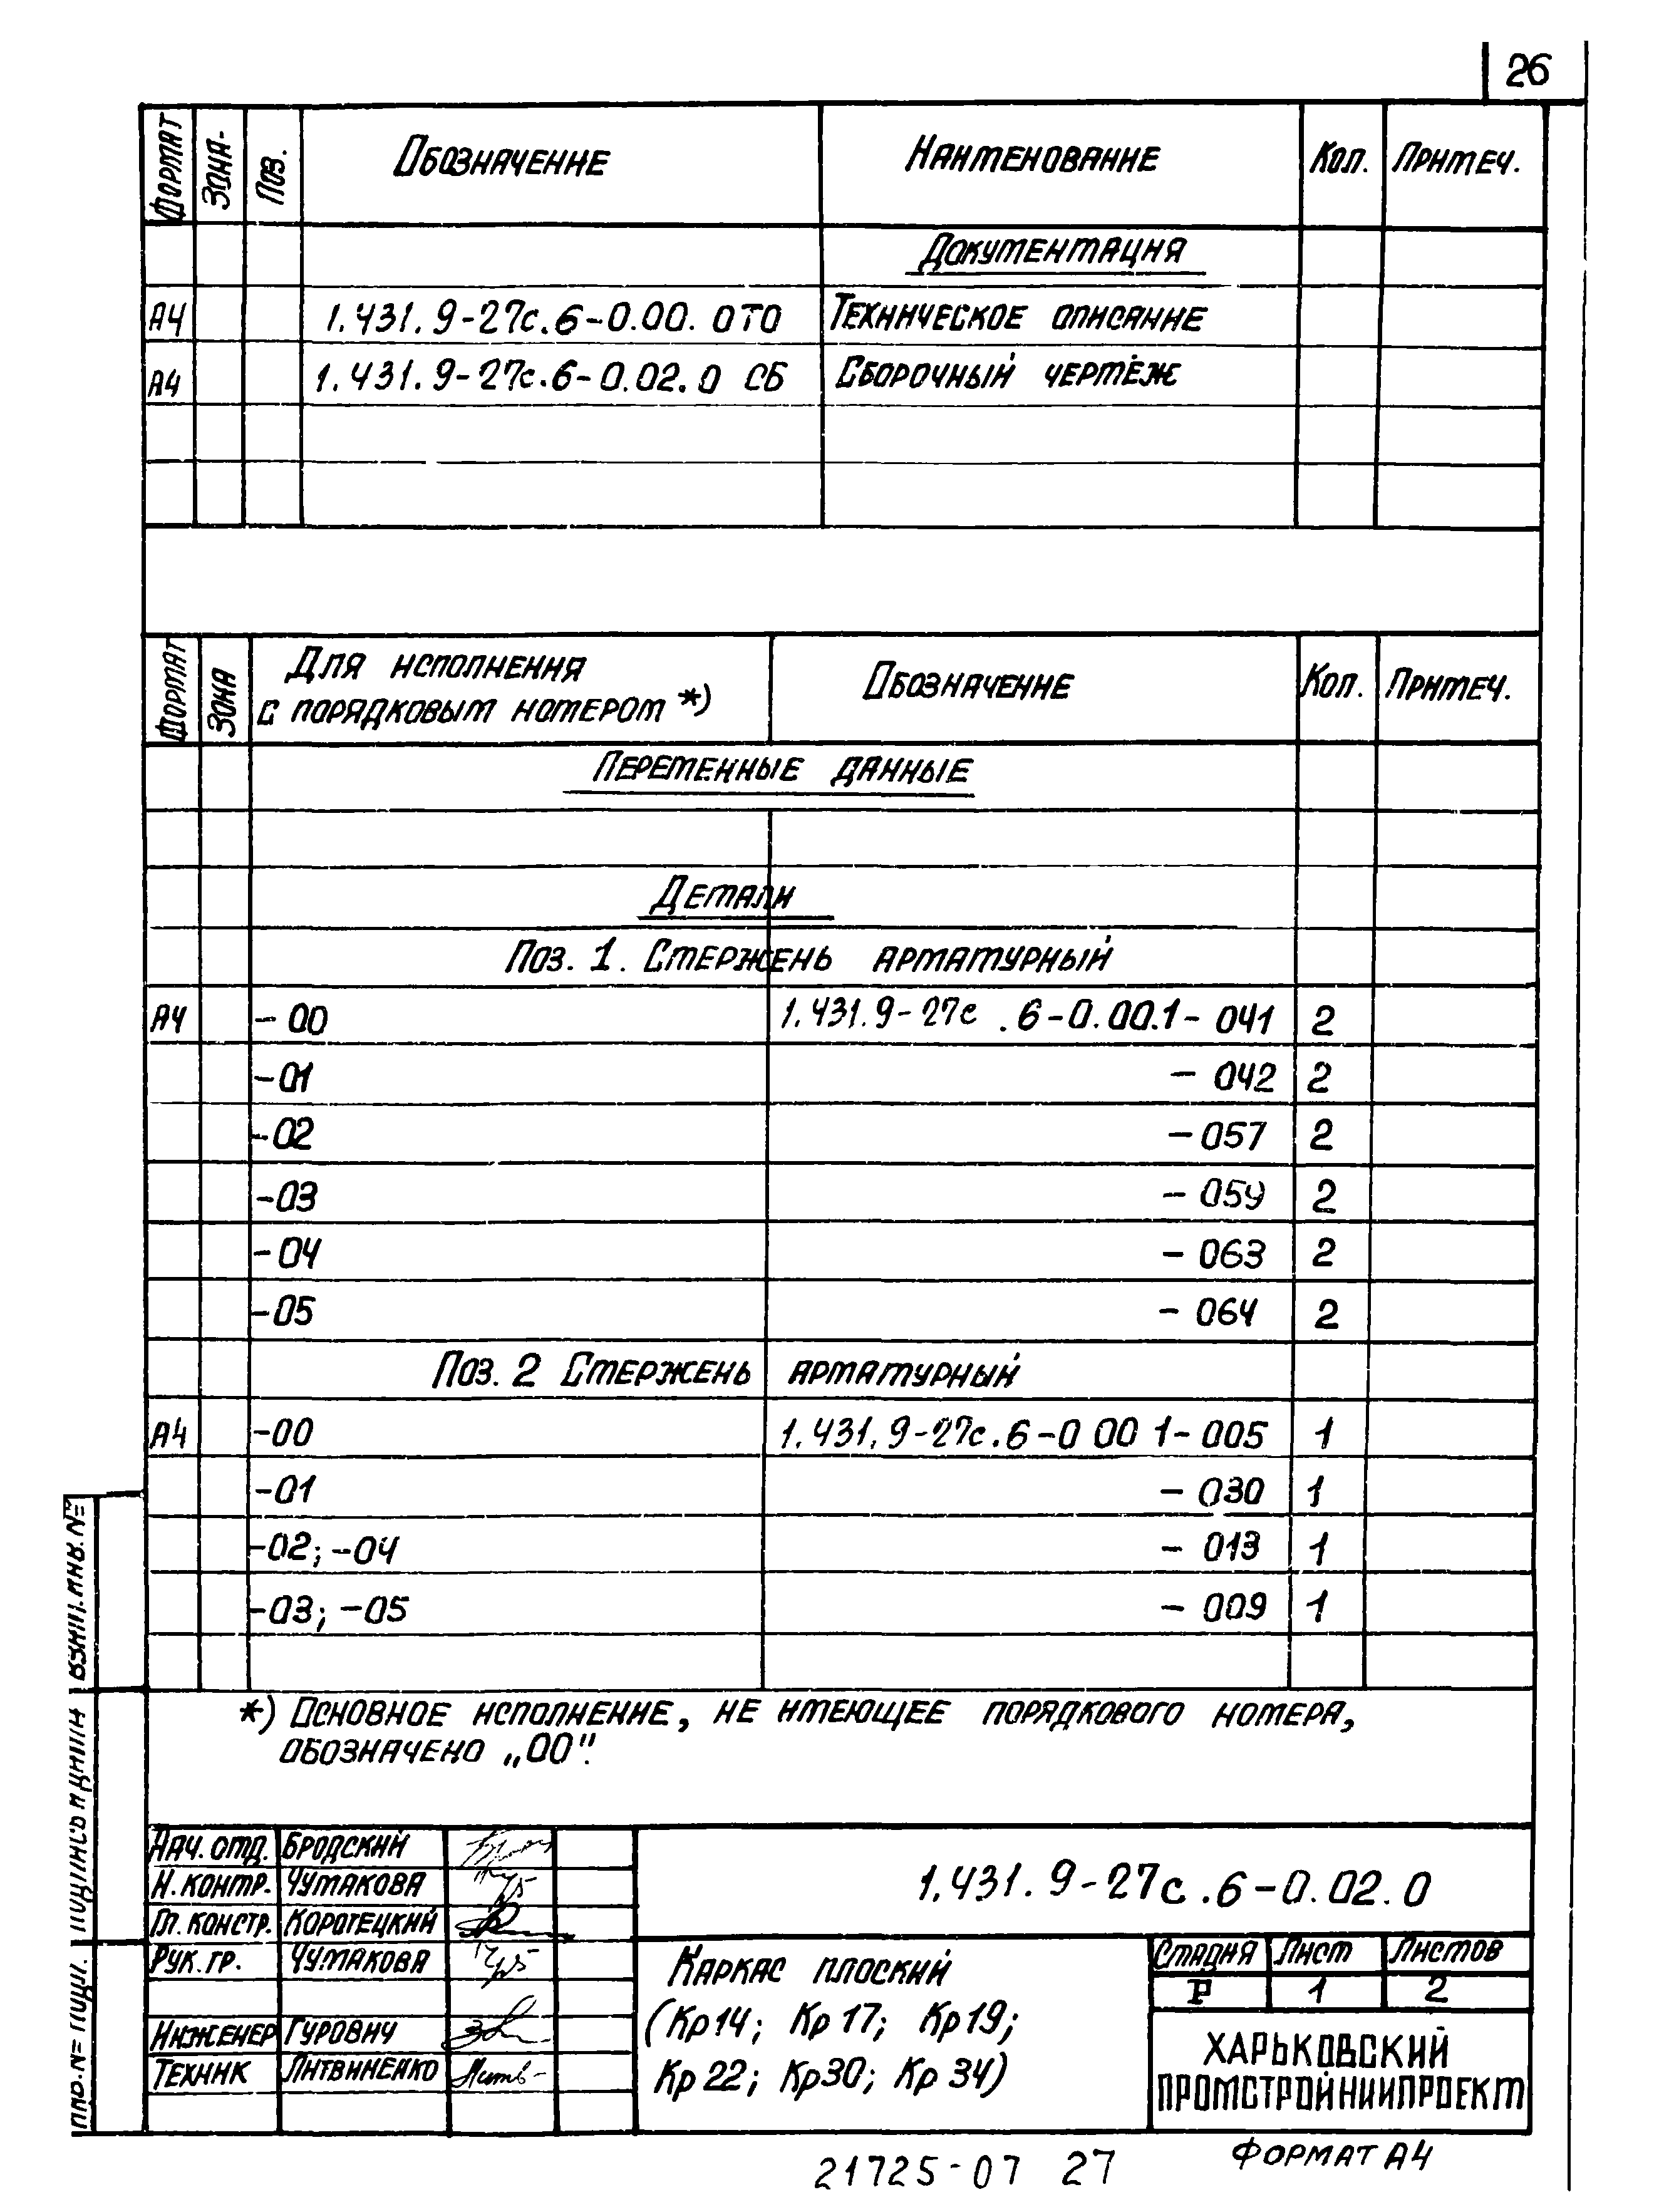 26
Формат Зона- Поз. Обозначение Наименование Кол. Примеч.
Документация
А4 1.431.9-27с.6-0.00.0ТО Техническое описание
А4 1.431.9-27с.6-0.02.0 СБ Сборочный чертёж
Формат Зона Для исполнения Обозначение Кол. Примеч.
с порядковым номером *)
Переменные данные
Детали
Поз. 1. Стержень арматурный
А4 -00 1.431.9-27с.6-0.00.1-041 2
-01 -042 2
-02 -057 2
-03 -059 2
-04 -063 2
-05 -064 2
Поз. 2 Стержень арматурный
А4 -00 1.431.9-27с.6-0 00 1-005 1
-01 -030 1
-02; -04 -013 1
-03; -05 -009 1
*) Основное исполнение, не имеющее порядкового номера,
обозначено „00".
Взам. инв. №
Подпись и дата
Инв. № подл.
Нач. отд. Бродский
Н. контр. Чумакова
Гл. констр. Коротецкий
Рук. гр. Чумакова
Инженер Гурович
Техник Литвиненко
1.431.9-27с.6-0.02.0
Каркас плоский
(Кр14; Кр17; Кр19;
Кр22; Кр30; Кр34)
Стадия Лист Листов
Р 1 2
ХАРЬКОВСКИЙ
ПРОМСТРОЙНИИПРОЕКТ
21725-07 27
Формат А4